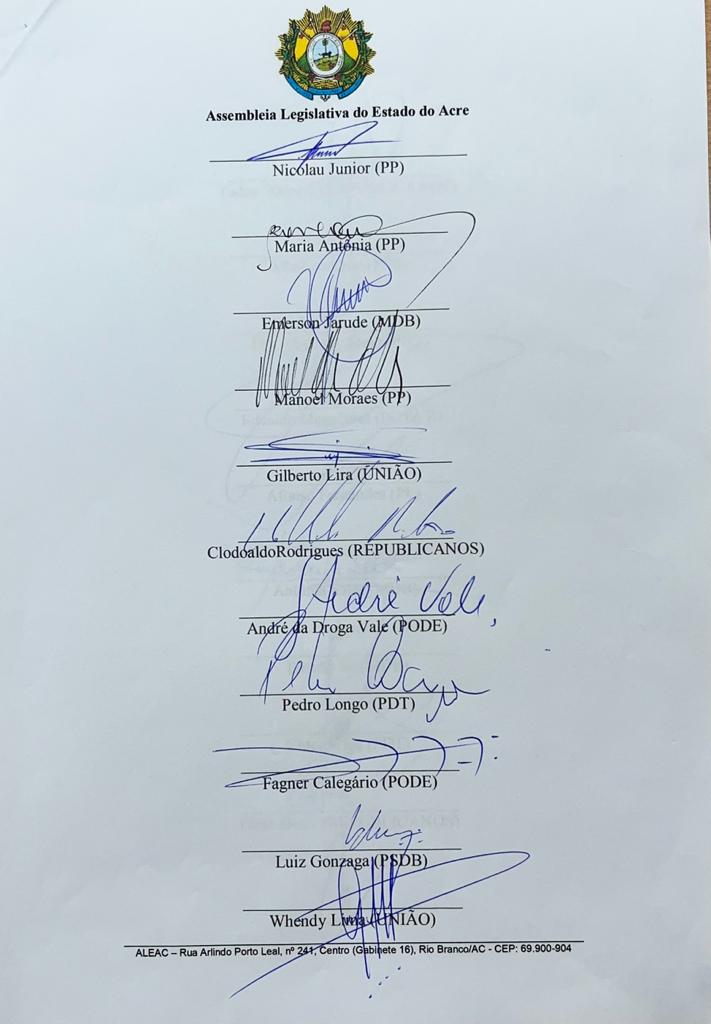 Assembleia Legislativa do Estado do Acre
Nicolau Junior (PP)
Maria Antônia (PP)
Emerson Jarude (MDB)
Manoel Moraes (PP)
Gilberto Lira (UNIÃO)
ClodoaldoRodrigues (REPUBLICANOS)
André Vale
André da Droga Vale (PODE)
Pedro Longo (PDT)
Fagner Calegário (PODE)
Luiz Gonzaga (PSDB)
Whendy Lima (UNIÃO)
ALEAC – Rua Arlindo Porto Leal, nº 241, Centro (Gabinete 16), Rio Branco/AC - CEP: 69.900-904